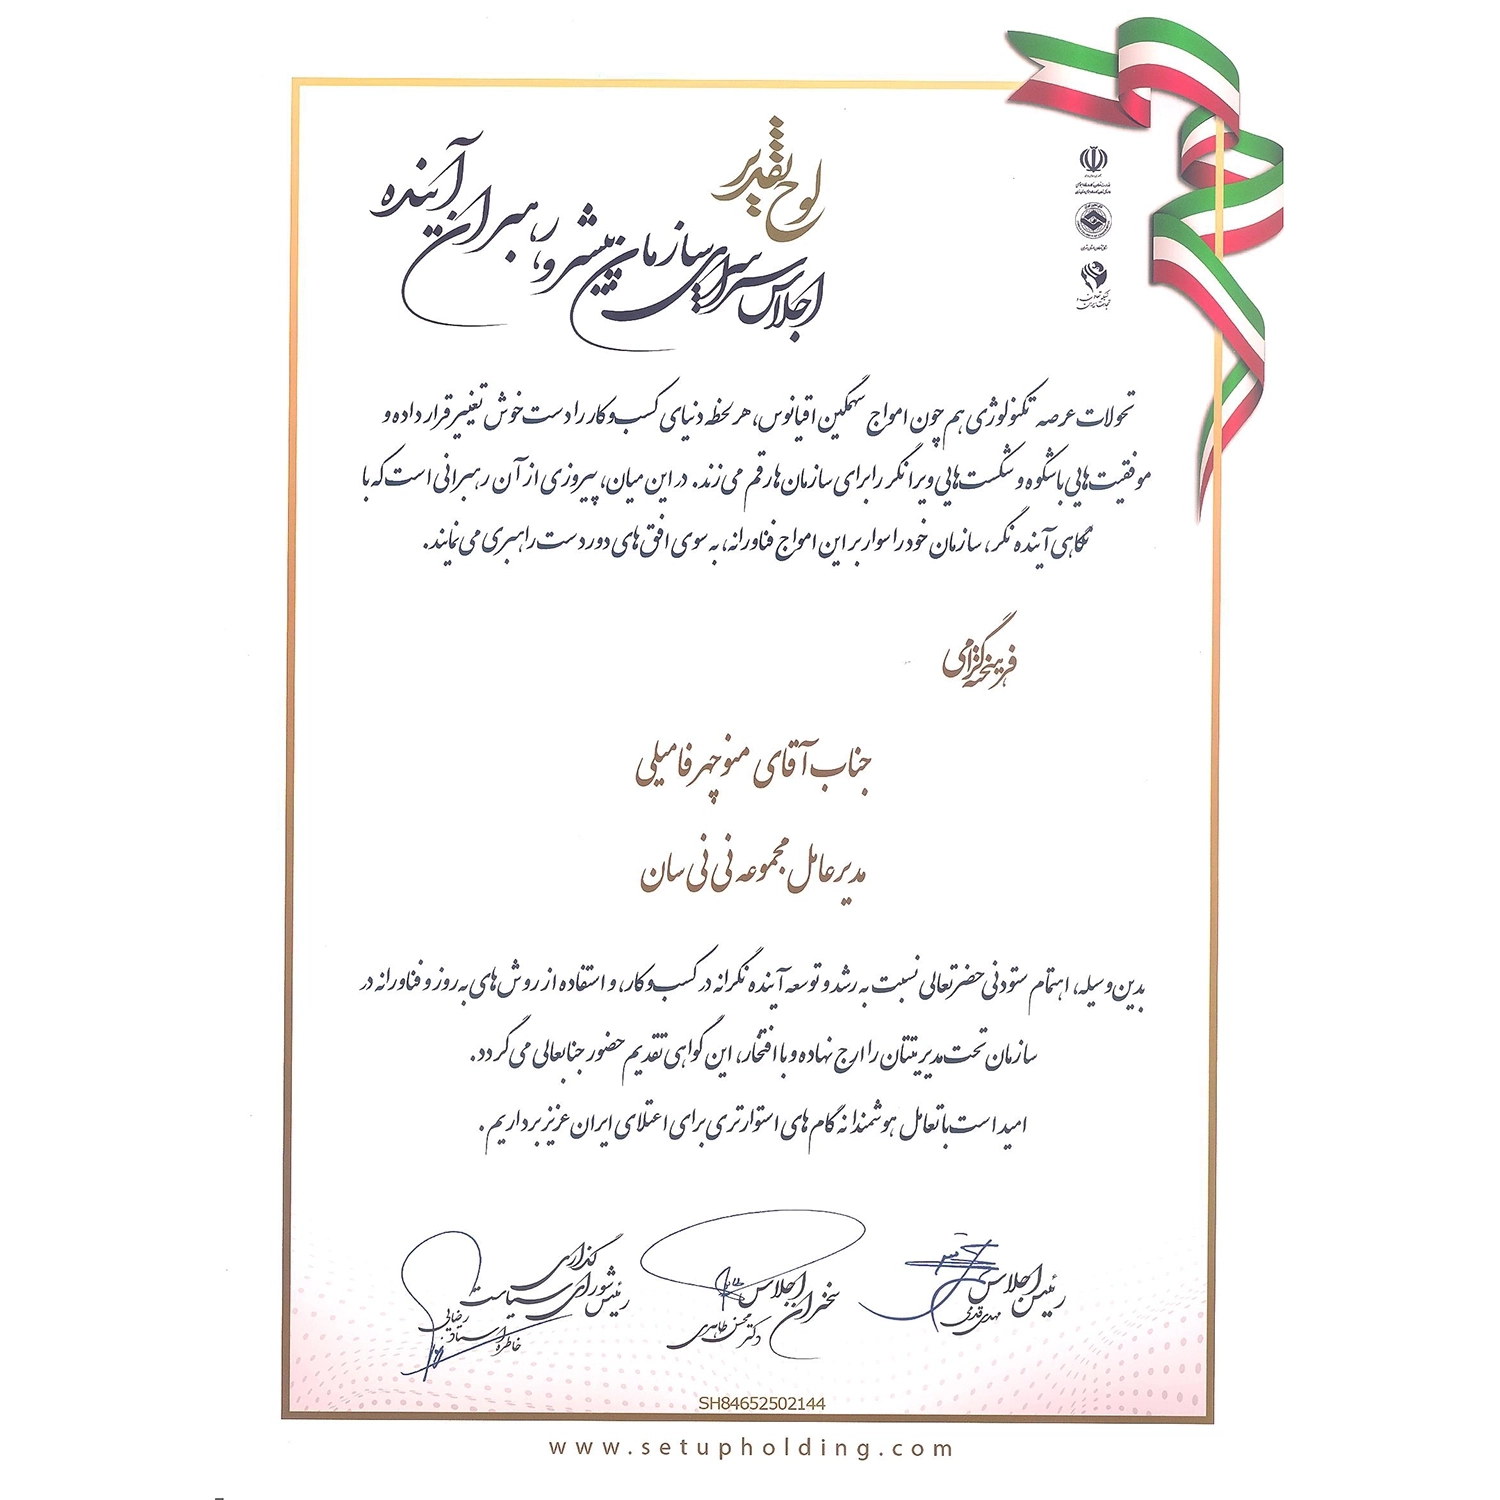 لوح تقدیر
اجلاس سراسری سازمان پیشرو، رهبران آینده
تحولات عرصه تکنولوژی هم چون امواج سهمگین اقیانوس، هر لحظه دنیای کسب و کار را دست خوش تغییر قرار داده و
موفقیت هایی باشکوه و شکست هایی ویرانگر را برای سازمان ها رقم می زند. در این میان، پیروزی از آن رهبرانی است که با
نگاهی آینده نگر، سازمان خود را سوار بر این امواج فناورانه، به سوی افق های دوردست راهبری می نمایند.
فرهیخته گرامی
جناب آقای منوچهر فامیلی
مدیرعامل مجموعه نی نی سان
بدین وسیله، اهتمام ستودنی حضرتعالی نسبت به رشد و توسعه آینده نگرانه در کسب و کار، و استفاده از روش های به روز و فناورانه در
سازمان تحت مدیریتتان را ارج نهاده و با افتخار، این گواهی تقدیم حضور جنابعالی می گردد.
امید است با تعامل هوشمندانه گام های استوارتری برای اعتلای ایران عزیز برداریم.
رئیس اجلاس
مهدی قدمی
سخنران اجلاس
دکتر محسن طاهری
رئیس شورای سیاست گذاری
خاطره استاد رضایی
SH84652502144
www.setupholding.com